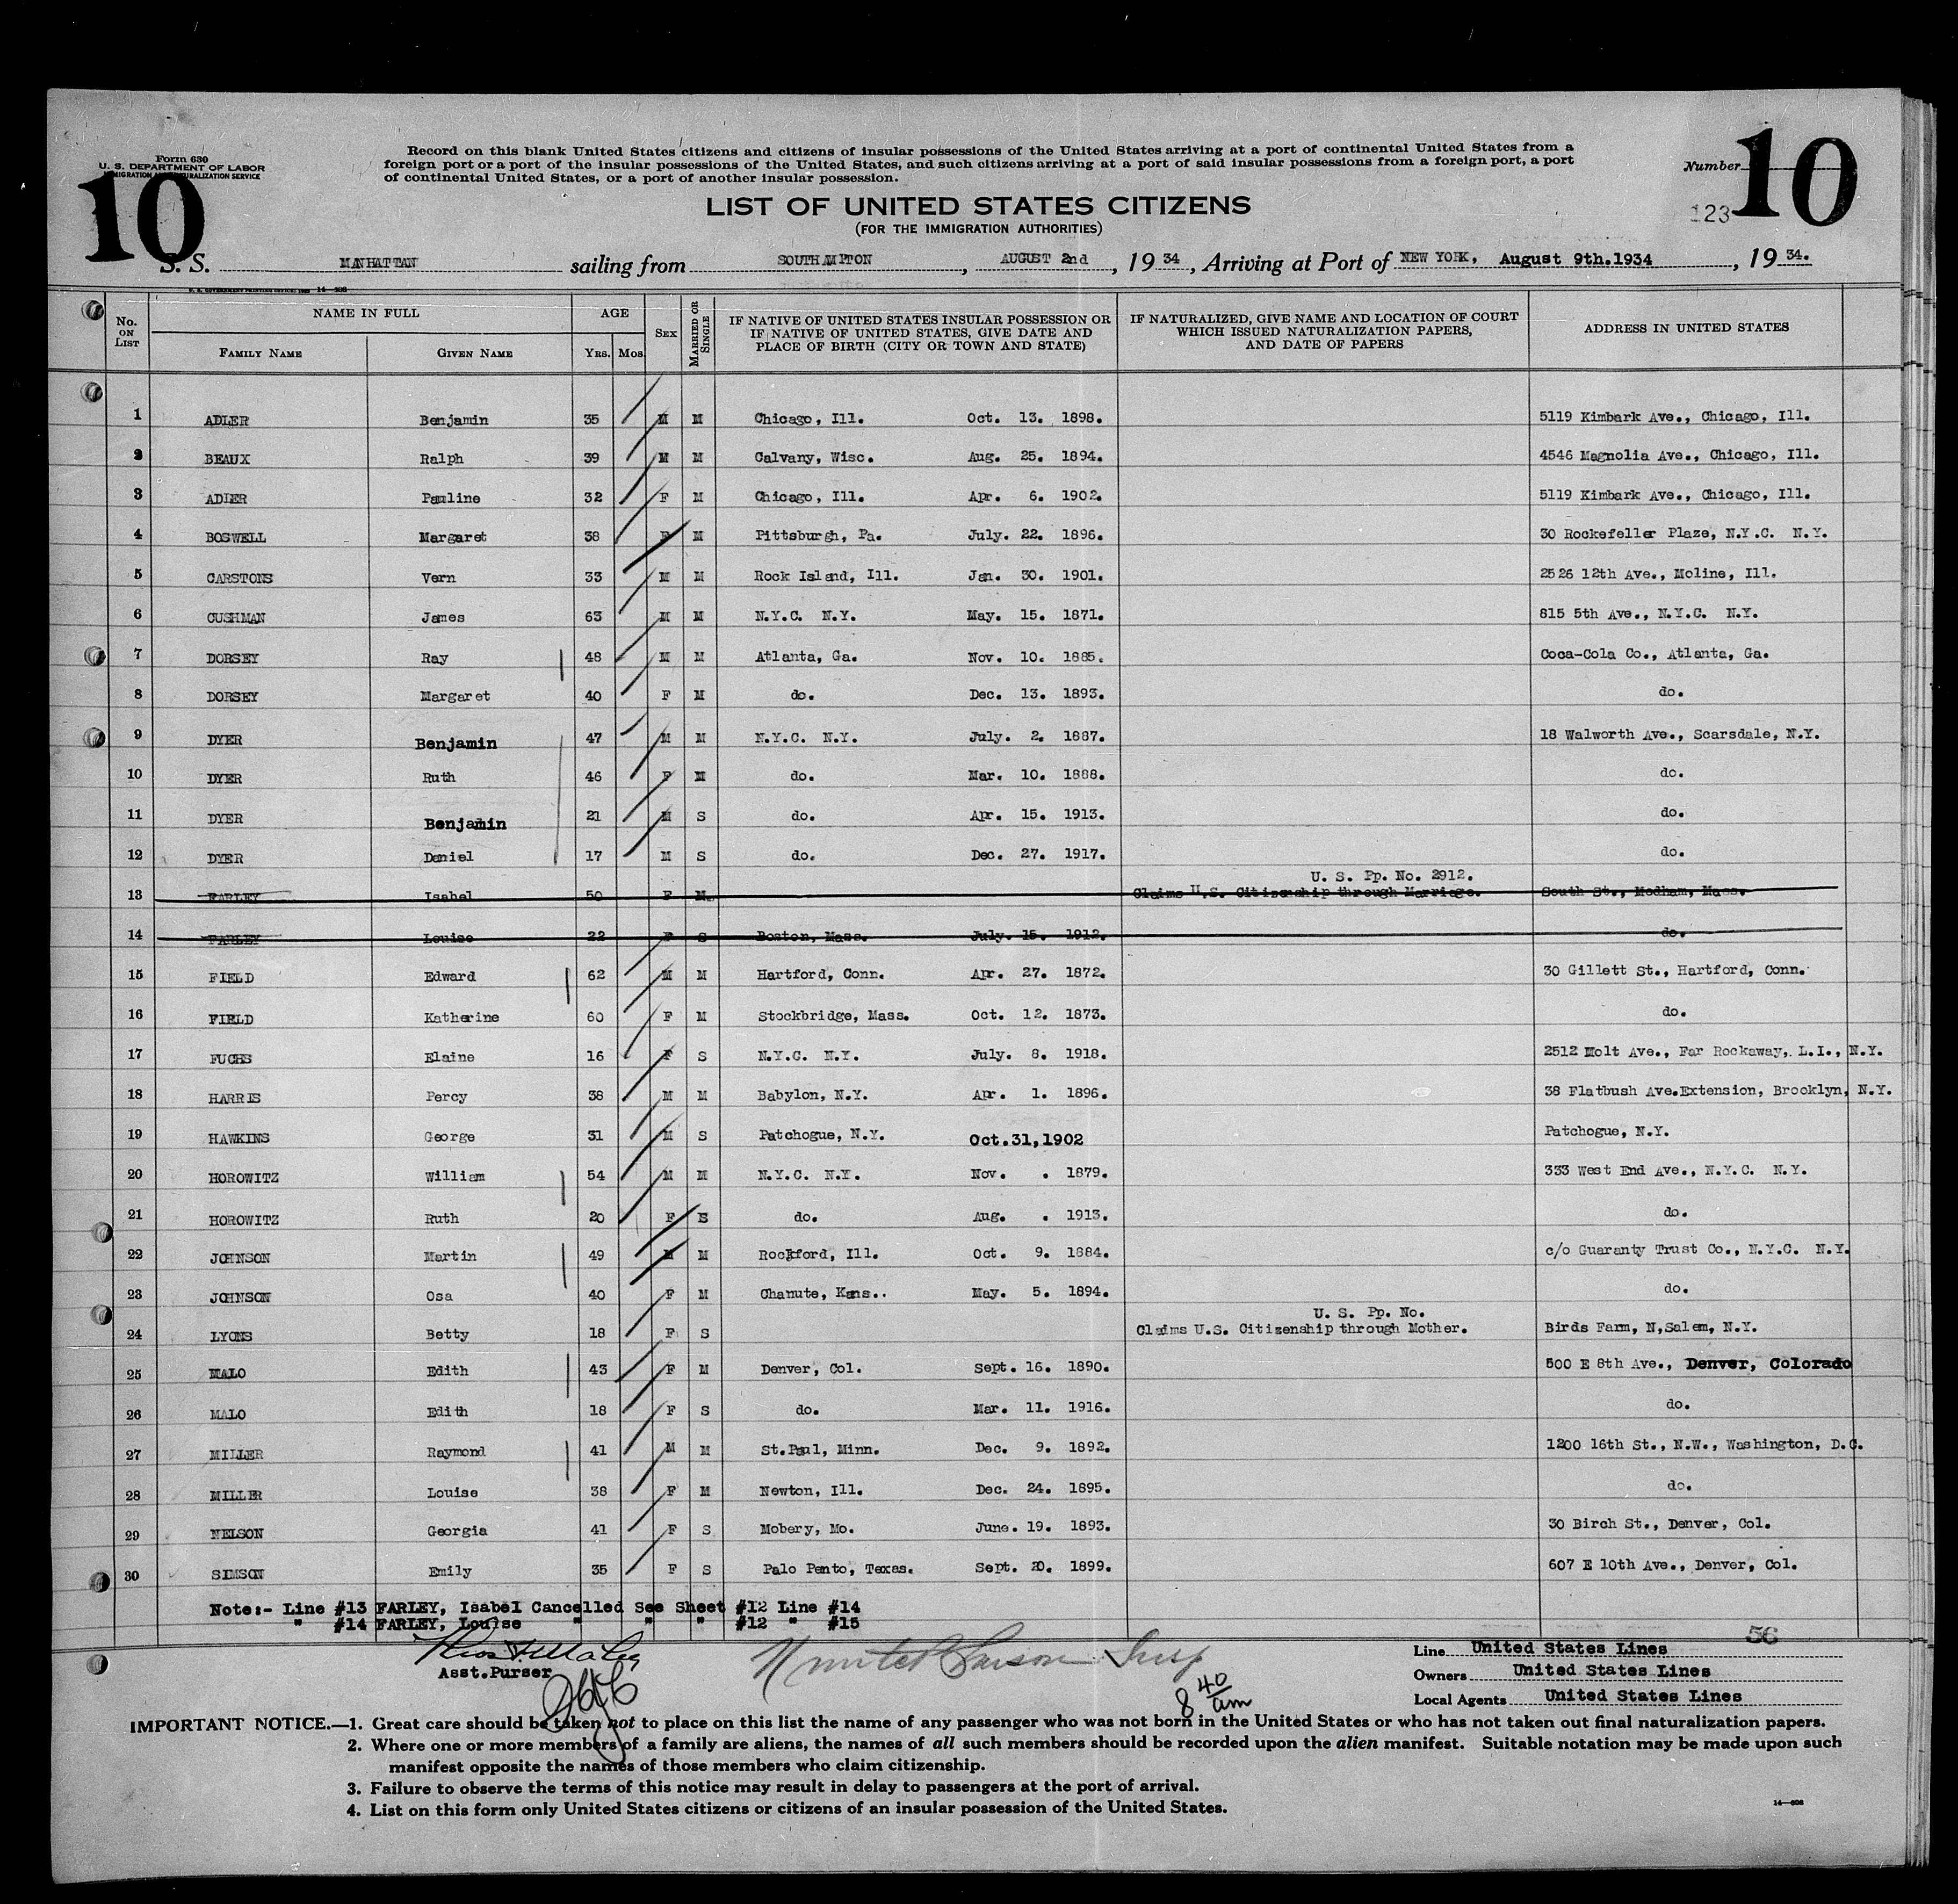 Form 630
U. S. DEPARTMENT OF LABOR
IMMIGRATION AND NATURALIZATION SERVICE
10
Record on this blank United States citizens and citizens of insular possessions of the United States arriving at a port of continental United States from a
foreign port or a port of the insular possessions of the United States, and such citizens arriving at a port of said insular possessions from a foreign port, a port
of continental United States, or a port of another insular possession.
Number 10
123
LIST OF UNITED STATES CITIZENS
(FOR THE IMMIGRATION AUTHORITIES)
S. S. MANHATTAN sailing from SOUTHAMPTON, AUGUST 2nd, 19 34, Arriving at Port of NEW YORK, August 9th.1934, 19 34.
U. S. GOVERNMENT PRINTING OFFICE: 1933 14—808
No. ON LIST NAME IN FULL AGE SEX MARRIED OR SINGLE IF NATIVE OF UNITED STATES INSULAR POSSESSION OR IF NATIVE OF UNITED STATES, GIVE DATE AND PLACE OF BIRTH (CITY OR TOWN AND STATE) IF NATURALIZED, GIVE NAME AND LOCATION OF COURT WHICH ISSUED NATURALIZATION PAPERS, AND DATE OF PAPERS ADDRESS IN UNITED STATES
FAMILY NAME GIVEN NAME YRS. MOS.
1 ADLER Benjamin 35 M M Chicago, Ill. Oct. 13. 1898. 5119 Kimbark Ave., Chicago, Ill.
2 BEAUX Ralph 39 M M Calvany, Wisc. Aug. 25. 1894. 4546 Magnolia Ave., Chicago, Ill.
3 ADLER Pauline 32 F M Chicago, Ill. Apr. 6. 1902. 5119 Kimbark Ave., Chicago, Ill.
4 BOSWELL Margaret 38 F M Pittsburgh, Pa. July. 22. 1896. 30 Rockefeller Plaze, N.Y.C. N.Y.
5 CARSTONS Vern 33 M M Rock Island, Ill. Jan. 30. 1901. 2526 12th Ave., Moline, Ill.
6 CUSHMAN James 63 M M N.Y.C. N.Y. May. 15. 1871. 815 5th Ave., N.Y.C. N.Y.
7 DORSEY Ray 48 M M Atlanta, Ga. Nov. 10. 1885. Coca-Cola Co., Atlanta, Ga.
8 DORSEY Margaret 40 F M do. Dec. 13. 1893. do.
9 DYER Benjamin 47 M M N.Y.C. N.Y. July. 2. 1887. 18 Walworth Ave., Scarsdale, N.Y.
10 DYER Ruth 46 F M do. Mar. 10. 1888. do.
11 DYER Benjamin 21 M S do. Apr. 15. 1913. do.
12 DYER Daniel 17 M S do. Dec. 27. 1917. do.
U. S. Pp. No. 2912.
13 FARLEY Isabel 50 F M. Claims U.S. Citizenship through Marriage. South St., Medham, Mass.
14 FARLEY Louise 22 F S Boston, Mass. July. 15. 1912. do.
15 FIELD Edward 62 M M Hartford, Conn. Apr. 27. 1872. 30 Gillett St., Hartford, Conn.
16 FIELD Katherine 60 F M Stockbridge, Mass. Oct. 12. 1873. do.
17 FUCHS Elaine 16 F S N.Y.C. N.Y. July. 8. 1918. 2512 Molt Ave., Far Rockaway, L.I., N.Y.
18 HARRIS Percy 38 M M Babylon, N.Y. Apr. 1. 1896. 38 Flatbush Ave.Extension, Brooklyn, N.Y.
19 HAWKINS George 31 M S Patchogue, N.Y. Oct.31,1902 Patchogue, N.Y.
20 HOROWITZ William 54 M M N.Y.C. N.Y. Nov. . 1879. 333 West End Ave., N.Y.C. N.Y.
21 HOROWITZ Ruth 20 F S do. Aug. . 1913. do.
22 JOHNSON Martin 49 M M Rockford, Ill. Oct. 9. 1884. c/o Guaranty Trust Co., N.Y.C. N.Y.
23 JOHNSON Osa 40 F M Chanute, Kans.. May. 5. 1894. do.
U. S. Pp. No.
24 LYONS Betty 18 F S Claims U.S. Citizenship through Mother. Birds Farm, N,Salem, N.Y.
25 MALO Edith 43 F M Denver, Col. Sept. 16. 1890. 500 E 8th Ave., Denver, Colorado
26 MALO Edith 18 F S do. Mar. 11. 1916. do.
27 MILLER Raymond 41 M M St.Paul, Minn. Dec. 9. 1892. 1200 16th St., N.W., Washington, D.C.
28 MILLER Louise 38 F M Newton, Ill. Dec. 24. 1895. do.
29 NELSON Georgia 41 F S Mobery, Mo. June. 19. 1893. 30 Birch St., Denver, Col.
30 SIMSON Emily 35 F S Palo Pento, Texas. Sept. 20. 1899. 607 E 10th Ave., Denver, Col.
Note:- Line #13 FARLEY, Isabel Cancelled See Sheet #12 Line #14
" #14 FARLEY, Louise " " " #12 " #15
56
Asst.Purser
Insp
8 40 am
Line United States Lines
Owners United States Lines
Local Agents United States Lines
IMPORTANT NOTICE.—1. Great care should be taken not to place on this list the name of any passenger who was not born in the United States or who has not taken out final naturalization papers.
2. Where one or more members of a family are aliens, the names of all such members should be recorded upon the alien manifest. Suitable notation may be made upon such
manifest opposite the names of those members who claim citizenship.
3. Failure to observe the terms of this notice may result in delay to passengers at the port of arrival.
4. List on this form only United States citizens or citizens of an insular possession of the United States.
14—808